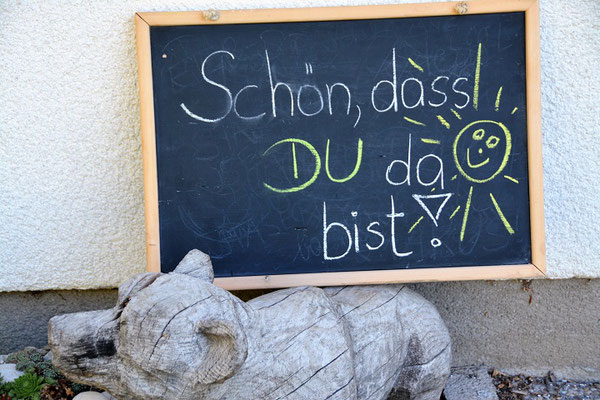 Schön, dass
DU da
bist!